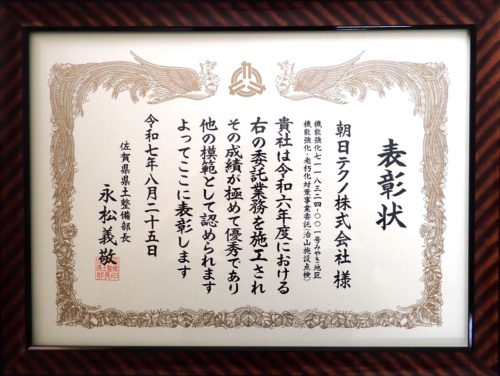 表彰状
朝日テクノ株式会社 様
機能強化七一一八三二四-〇〇一号みやき地区
機能強化・老朽化対策事業委託(治山施設点検)
貴社は令和六年度における
右の委託業務を施工され
その成績が極めて優秀であり
他の模範として認められます
よってここに表彰します
令和七年八月二十五日
佐賀県県土整備部長
永松義敬